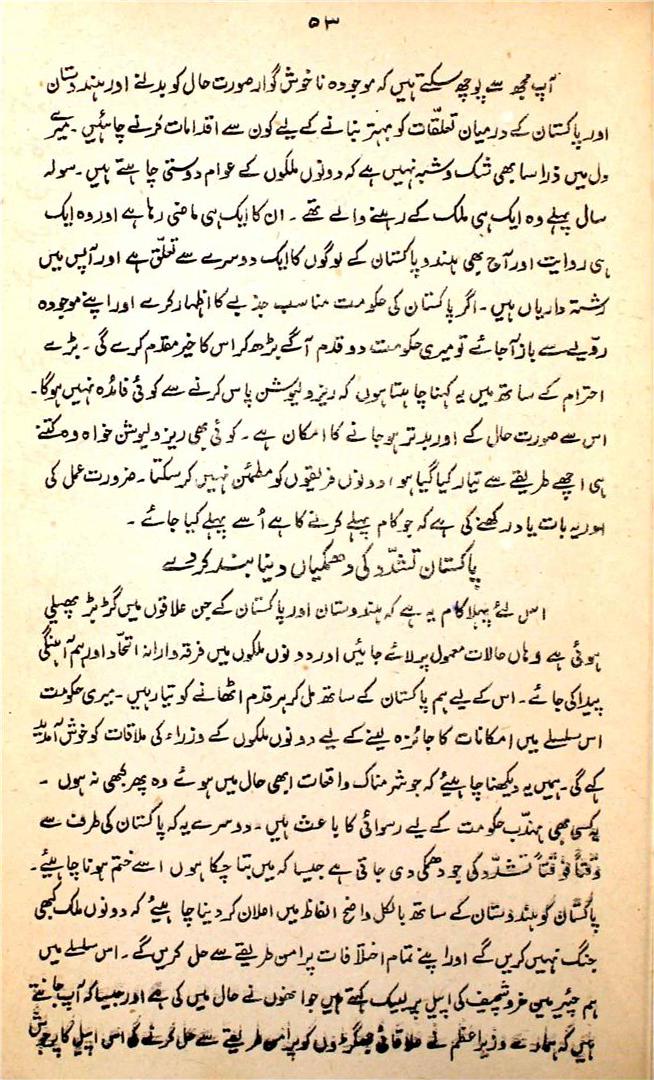 ۵۳
آپ مجھ سے پوچھ سکتے ہیں کہ موجودہ ناخوش گوار صورت حال کو بدلنے اور ہندوستان
اور پاکستان کے درمیان تعلّقات کو بہتر بنانے کے لیے کون سے اقدامات کرنے چاہئیں ۔ میرے
دل میں ذرا سا بھی شک و شبہ نہیں ہے کہ دونوں ملکوں کے عوام دوستی چاہتے ہیں ۔ سولہ
سال پہلے وہ ایک ہی ملک کے رہنے والے تھے ۔ ان کا ایک ہی ماضی رہا ہے اور وہ ایک
ہی روایت اور آج بھی ہندو پاکستان کے لوگوں کا ایک دوسرے سے تعلّق ہے اور آپس میں
رشتہ داریاں ہیں ۔ اگر پاکستان کی حکومت مناسب جذبے کا اظہار کرے اور اپنے موجودہ
روّیے سے باز آجائے تو میری حکومت دو قدم آگے بڑھ کر اس کا خیر مقدم کرے گی ۔ بڑے
احترام کے ساتھ میں یہ کہنا چاہتا ہوں کہ ریزولیوشن پاس کرنے سے کوئی فائدہ نہیں ہوگا ۔
اس سے صورت حال کے اور بدتر ہوجانے کا امکان ہے ۔ کوئی بھی ریزولیوشن خواہ وہ کتنے
ہی اچھے طریقے سے تیار کیا گیا ہو دونوں فریقوں کو مطمئن نہیں کر سکتا ۔ ضرورت عمل کی
اور یہ بات یاد رکھنے کی ہے کہ جو کام پہلے کرنے کا ہے اُسے پہلے کیا جائے ۔
پاکستان تشدّد کی دھمکیاں دینا بند کردے
اس لئے پہلا کام یہ ہے کہ ہندوستان اور پاکستان کے جن علاقوں میں گڑبڑ پھیلی
ہوئی ہے وہاں حالات معمول پر لائے جائیں اور دونوں ملکوں میں فرقہ وارانہ اتحّاد اور ہم آہنگی
پیدا کی جائے ۔ اس کے لیے ہم پاکستان کے ساتھ مل کر ہر قدم اٹھانے کو تیار ہیں ۔ میری حکومت
اس سلسلے میں امکانات کا جائزہ لینے کے لیے دونوں ملکوں کے وزراء کی ملاقات کو خوش آمدید
کہے گی ۔ ہمیں یہ دیکھنا چاہیئے کہ جو شرمناک واقعات ابھی حال میں ہوئے وہ پھر کبھی نہ ہوں ۔
یہ کسی بھی مہذّب حکومت کے لیے رسوائی کا باعث ہیں ۔ دوسرے یہ کہ پاکستان کی طرف سے
وقتاً فوقتاً تشدّد کی جو دھمکی دی جاتی ہے جیسا کہ میں بتا چکا ہوں اسے ختم ہونا چاہیئے ۔
پاکستان کو ہندوستان کے ساتھ بالکل واضح الفاظ میں اعلان کر دینا چاہیئے کہ دونوں ملک کبھی
جنگ نہیں کریں گے اور اپنے تمام اختلافات پرامن طریقے سے حل کریں گے ۔ اس سلسلے میں
ہم چئیرمین خروشچیف کی اپیل پر لبیک کہتے ہیں جو انھوں نے حال میں کی ہے اور جیسا کہ آپ جانتے
ہیں کہ ہمارے وزیراعظم نے علاقائی جھگڑوں کو پرامن طریقے سے حل کرنے کی اس اپیل کا پرجوش